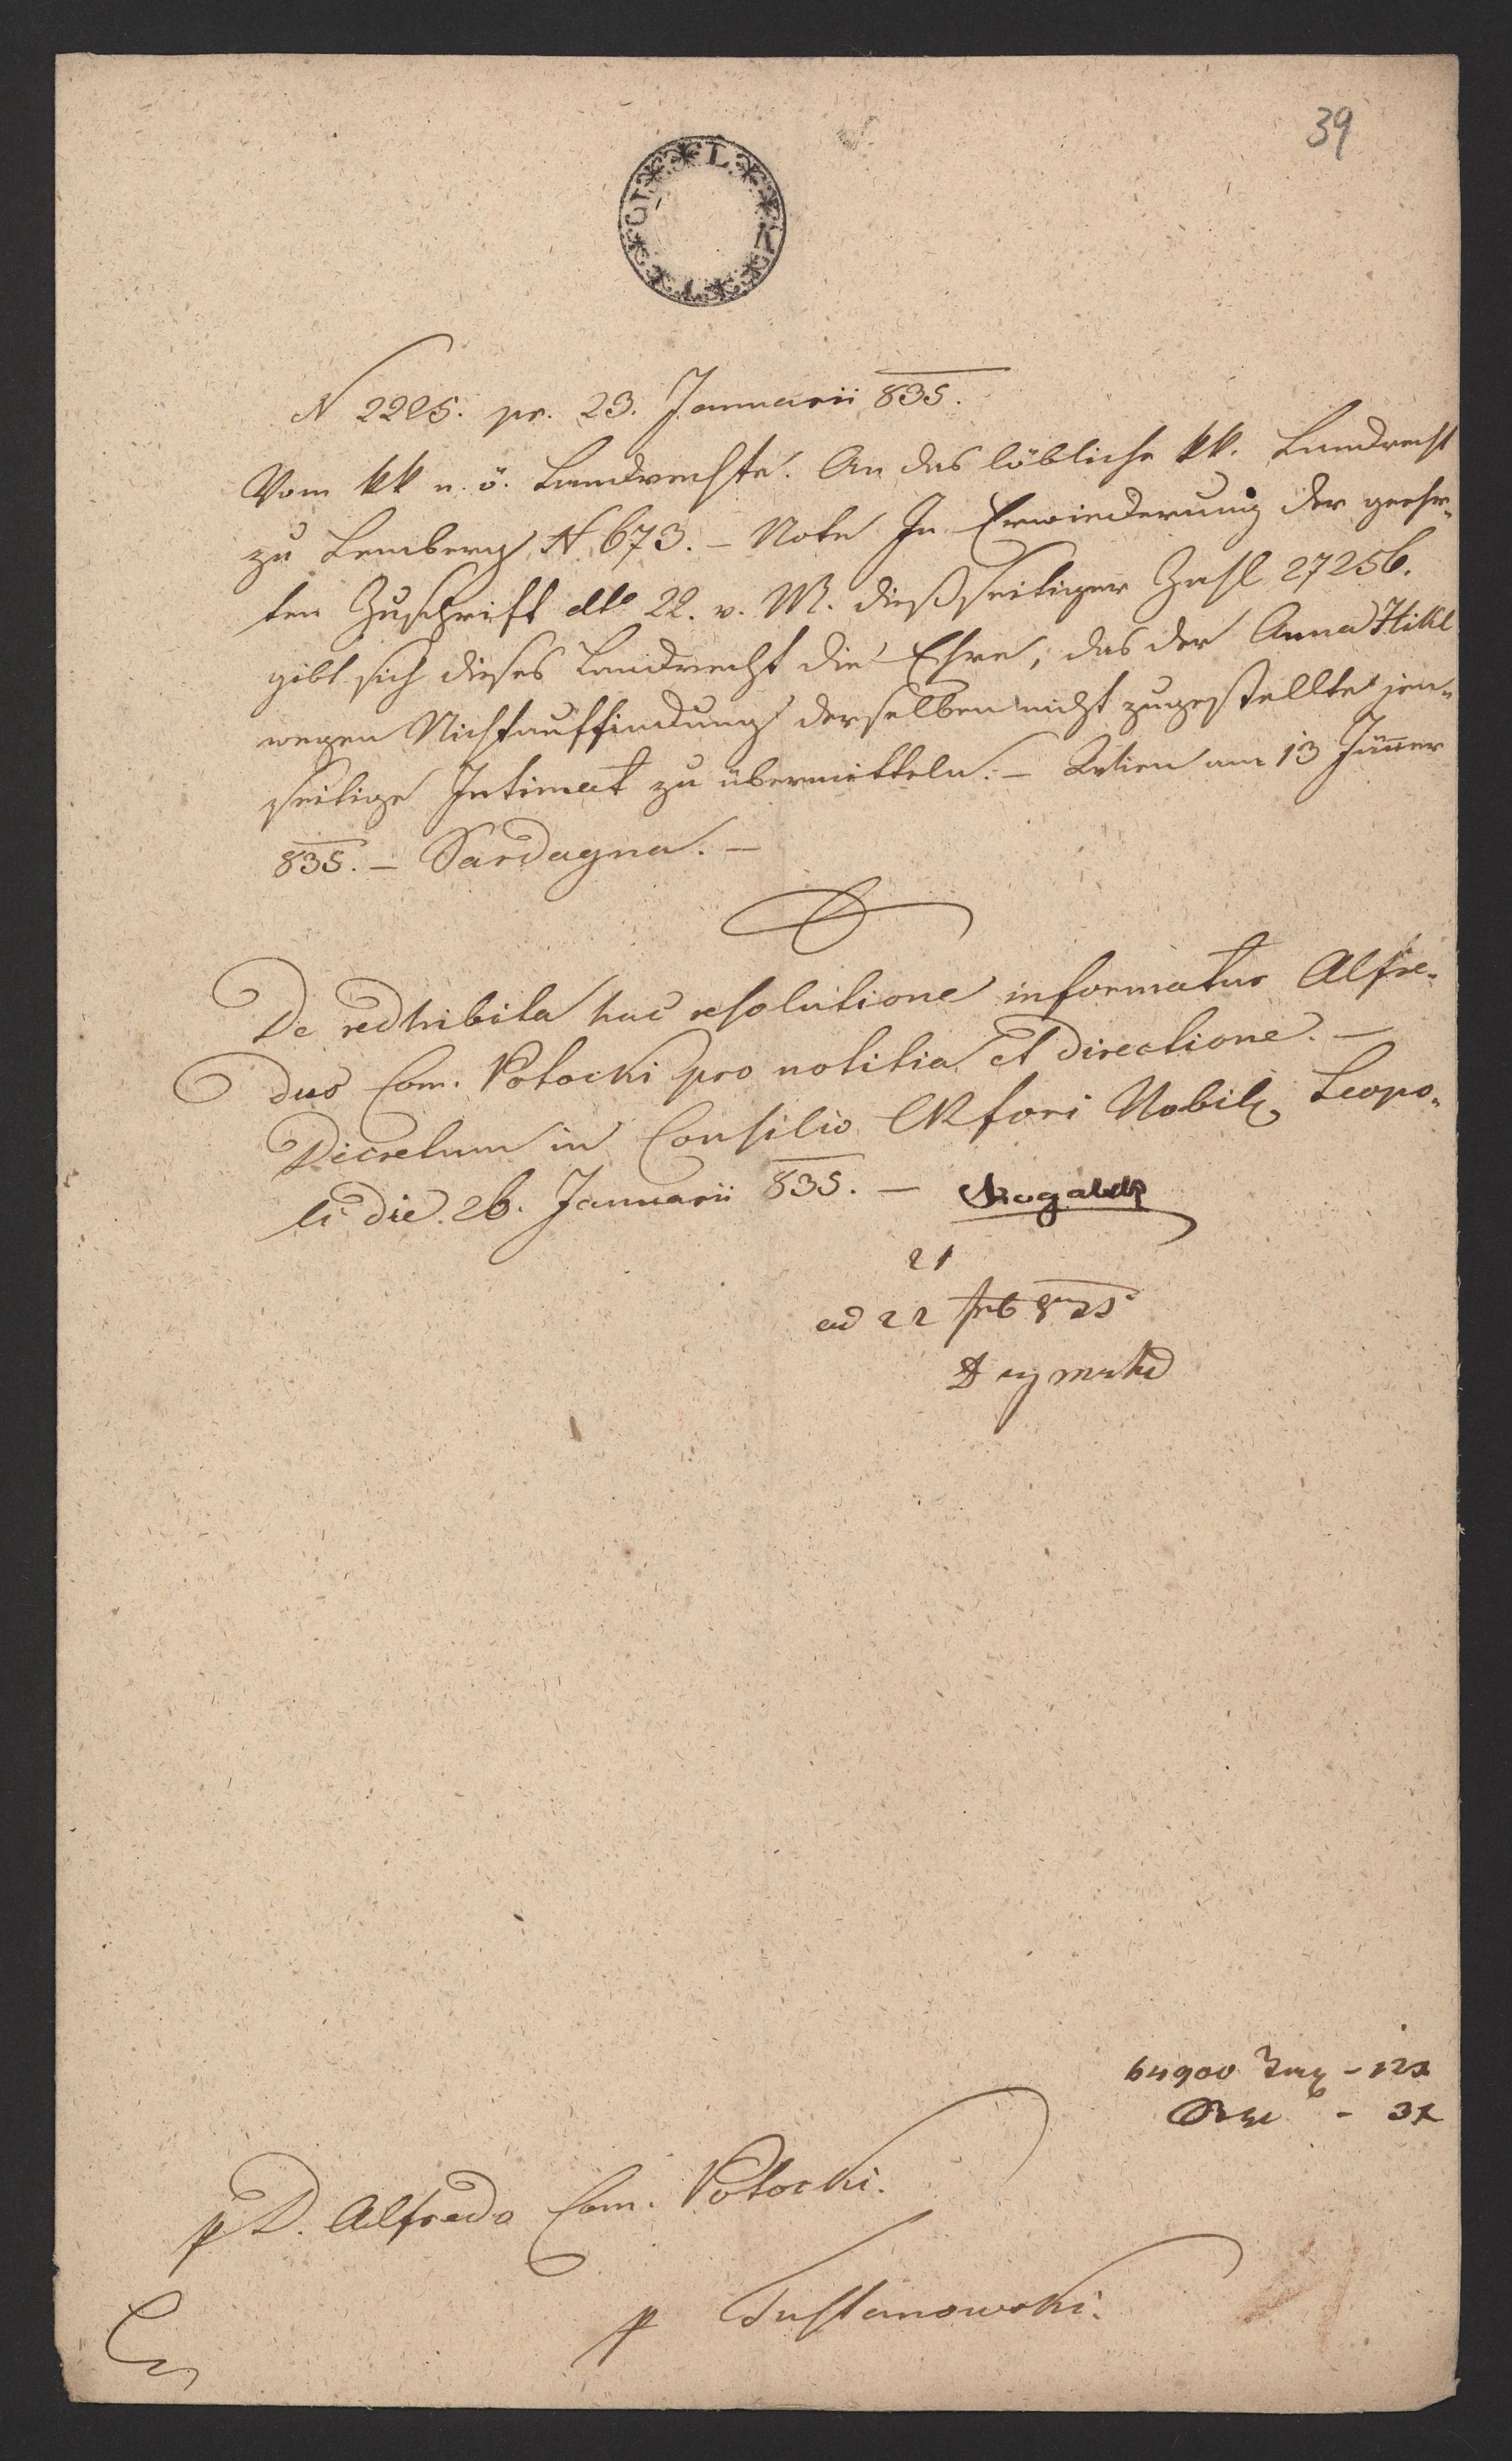 39
N 2225. pr. 23. Januarii 835.
Vom kk n. ö. Landrechte. An das löbliche kk. Landrecht
zu Lemberg N 673. – Note In Erwiederung der geehr-
ten Zuschrift dto 22. v. M. dießseitiger Zahl 27256.
gibt sich dieses Landrecht die Ehre, das der Anna Hikl
wegen Nichtauffindung derselben nicht zugestellte jen-
seitige Intimat zu übermitteln. – Wien am 13 Jäner
835. – Sardagna. –
De redhibita hac resolutione informatur Alfre-
dus Com. Potocki pro notitia et directione. –
Decretum in Consilio CR fori Nobil. Leopo-
li die 26. Januarii 835. –
21
ad 22 feb 835
64900 – 12x
– 3x
p D. Alfredo Com. Potocki.
p Tustanowski.